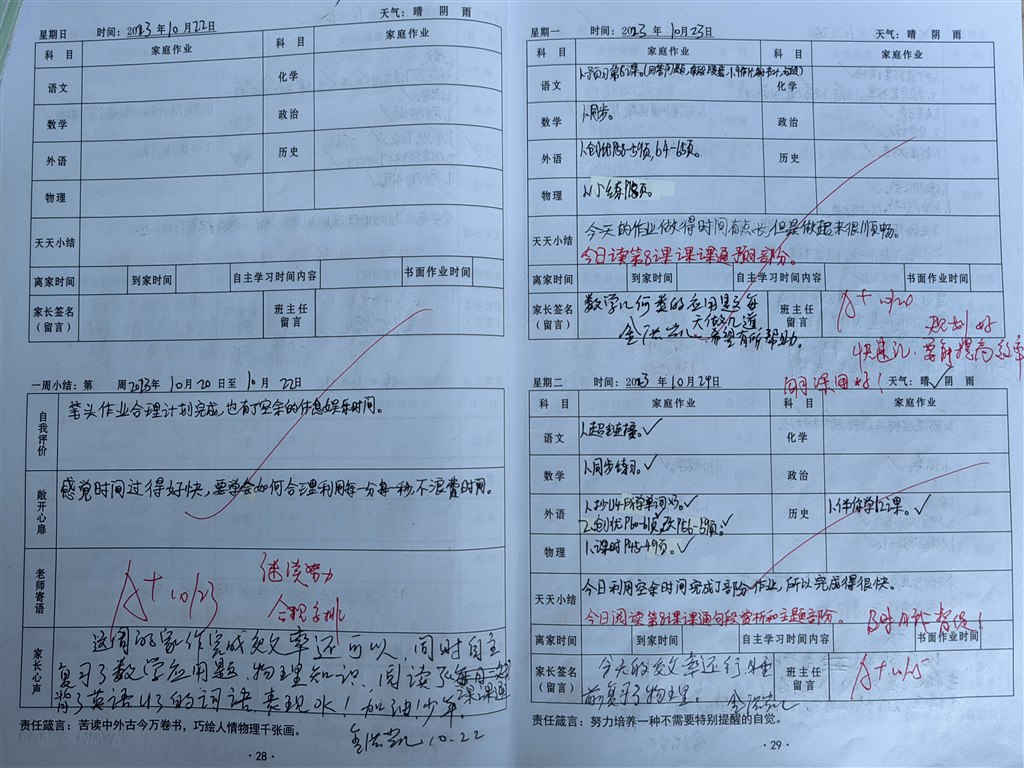 天气：晴 阴 雨
星期日 时间：2023 年 10 月 22 日
科 目 家庭作业 科 目 家庭作业
语文 化学
数学 政治
外语 历史
物理
天天小结
离家时间 到家时间 自主学习时间内容 书面作业时间
家长签名（留言） 班主任留言
一周小结：第 周 2023年 10 月 20 日至 10 月 22日
自我评价 笔头作业合理计划完成，也有了空余的休息娱乐时间。
敞开心扉 感觉时间过得好快，要学会如何合理利用每一分每一秒，不浪费时间。
老师寄语 A+ 10/23 继续努力
合理安排
家长心声 这周的家作完成效率还可以，同时自主
复习了数学应用题、物理知识，阅读了每日一
课课通
了英语U4的词语，表现OK！加油！少年。
责任箴言：苦读中外古今万卷书，巧绘人情物理千张画。
10.22
· 28 ·
星期一 时间：2023 年 10 月 23 日 天气：晴 阴 雨
科 目 家庭作业 科 目 家庭作业
语文 1.预习第8课。 化学
数学 1.同步。 政治
外语 1.创优P58-59页，64-65页。 历史
物理 1.小练
天天小结 今天的作业做得时间有点长，但是做起来很顺畅。
今日读第8课课课通预习部分。
离家时间 到家时间 自主学习时间内容 书面作业时间
家长签名（留言） 数学几何类的应用题，每
天做几道
希望有所帮助。
班主任留言 A+
规划好
快速记，要能提高效率
星期二 时间：2023 年 10 月 29 日 天气：晴 阴 雨
科 目 家庭作业 科 目 家庭作业
语文 1.超链接。✓ 化学
数学 1.同步练习。✓ 政治
外语 1.抄U4所学单词 ✓ 历史 1.伴你学12课。✓
2.创优P60-61页，改P56-59页。✓
物理 1.课时P45-49页。✓
天天小结 今日利用空余时间完成了部分作业，所以完成得很快。
今日阅读第8课课课通句段赏析和主题部分。
离家时间 到家时间 自主学习时间内容 书面作业时间
家长签名（留言） 今天的效率还行，睡
前复习了物理。
班主任留言 A+
责任箴言：努力培养一种不需要特别提醒的自觉。
· 29 ·